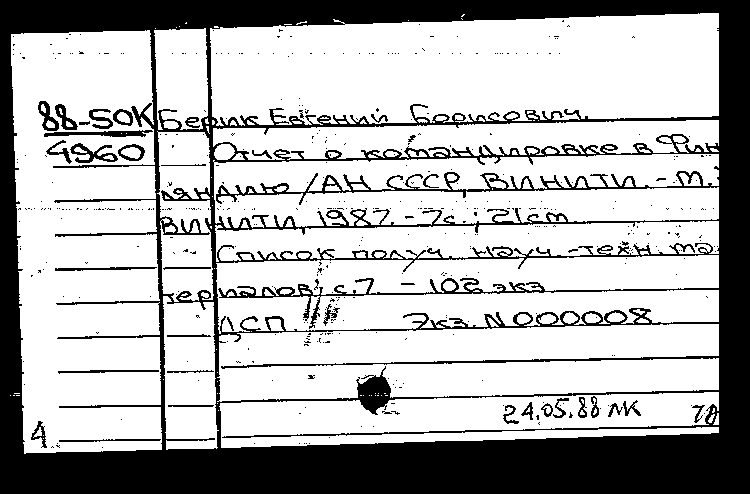 88-50К Берик, Евгений Борисович.
4960 Отчет о командировке в Фин
ляндию / АН СССР, ВИНИТИ. - М.:
ВИНИТИ, 1987. - 7с.; 21 cm
Список получ. науч.-техн. ма
териалов: с.7 - 102 экз
ДСП. Экз. N000008
24.05.88 ЛК 78
4